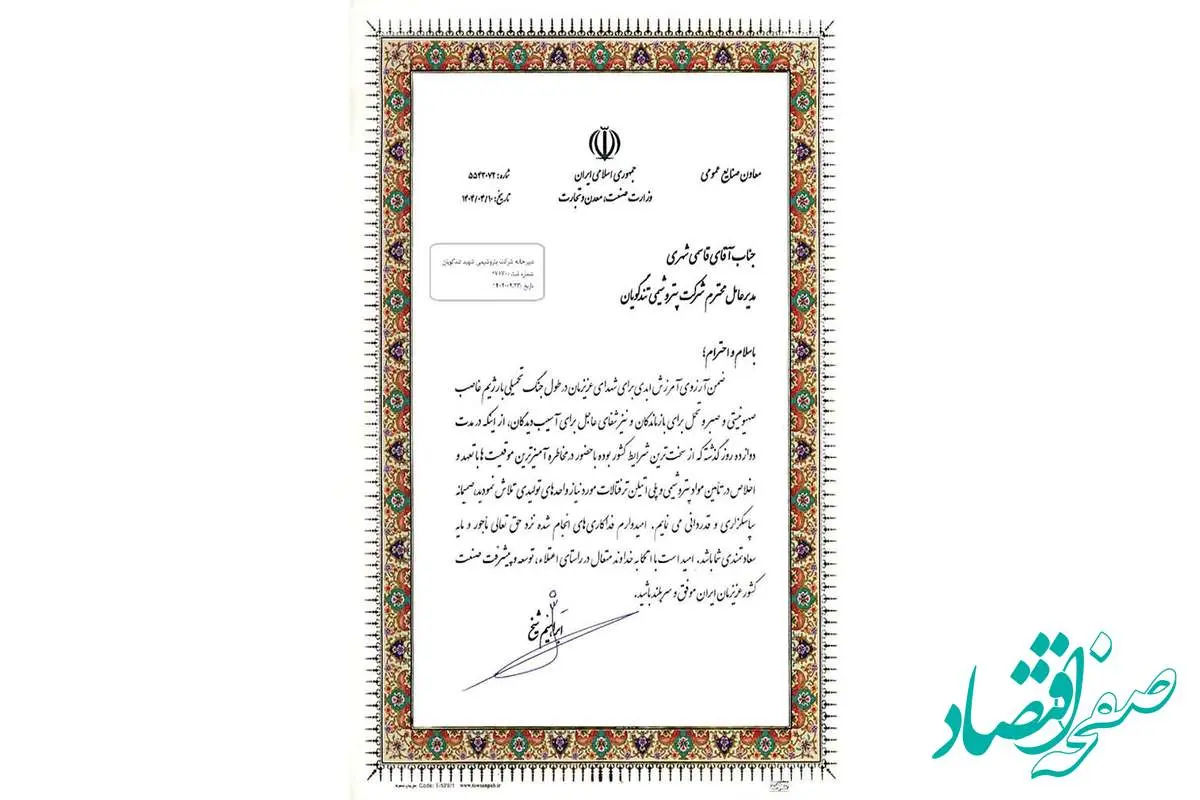 جمهوری اسلامی ایران
وزارت صنعت، معدن و تجارت
معاون صنایع عمومی
شماره: ۵۵۲۲۰۷۲
دبیرخانه شرکت پتروشیمی شهید تندگویان
شماره ثبت:
تاریخ:
جناب آقای قاسمی شهری
مدیرعامل محترم شرکت پتروشیمی تندگویان
باسلام و احترام؛
ضمن آرزوی آمرزش ابدی برای شهدای عزیزمان در طول جنگ تحمیلی با رژیم غاصب
صهیونیستی و صبر و تحمل برای بازماندگان و نیز شفای عاجل برای آسیب دیدگان، از اینکه در مدت
دوازده روز گذشته که از سخت‌ترین شرایط کشور بوده با حضور در مخاطره آمیزترین موقعیت ها با تعهد و
اخلاص در تامین مواد پتروشیمی و پلی اتیلن ترفتالات مورد نیاز واحدهای تولیدی تلاش نمودید، صمیمانه
سپاسگزاری و قدردانی می نمایم. امیدوارم فداکاری‌های انجام شده نزد حق تعالی مأجور و مایه
سعادتمندی شما باشد. امید است با اتکا به خداوند متعال در راستای اعتلاء، توسعه و پیشرفت صنعت
کشور عزیزمان ایران موفق و سربلند باشید.
ابراهیم شیخ
صفحه اقتصاد